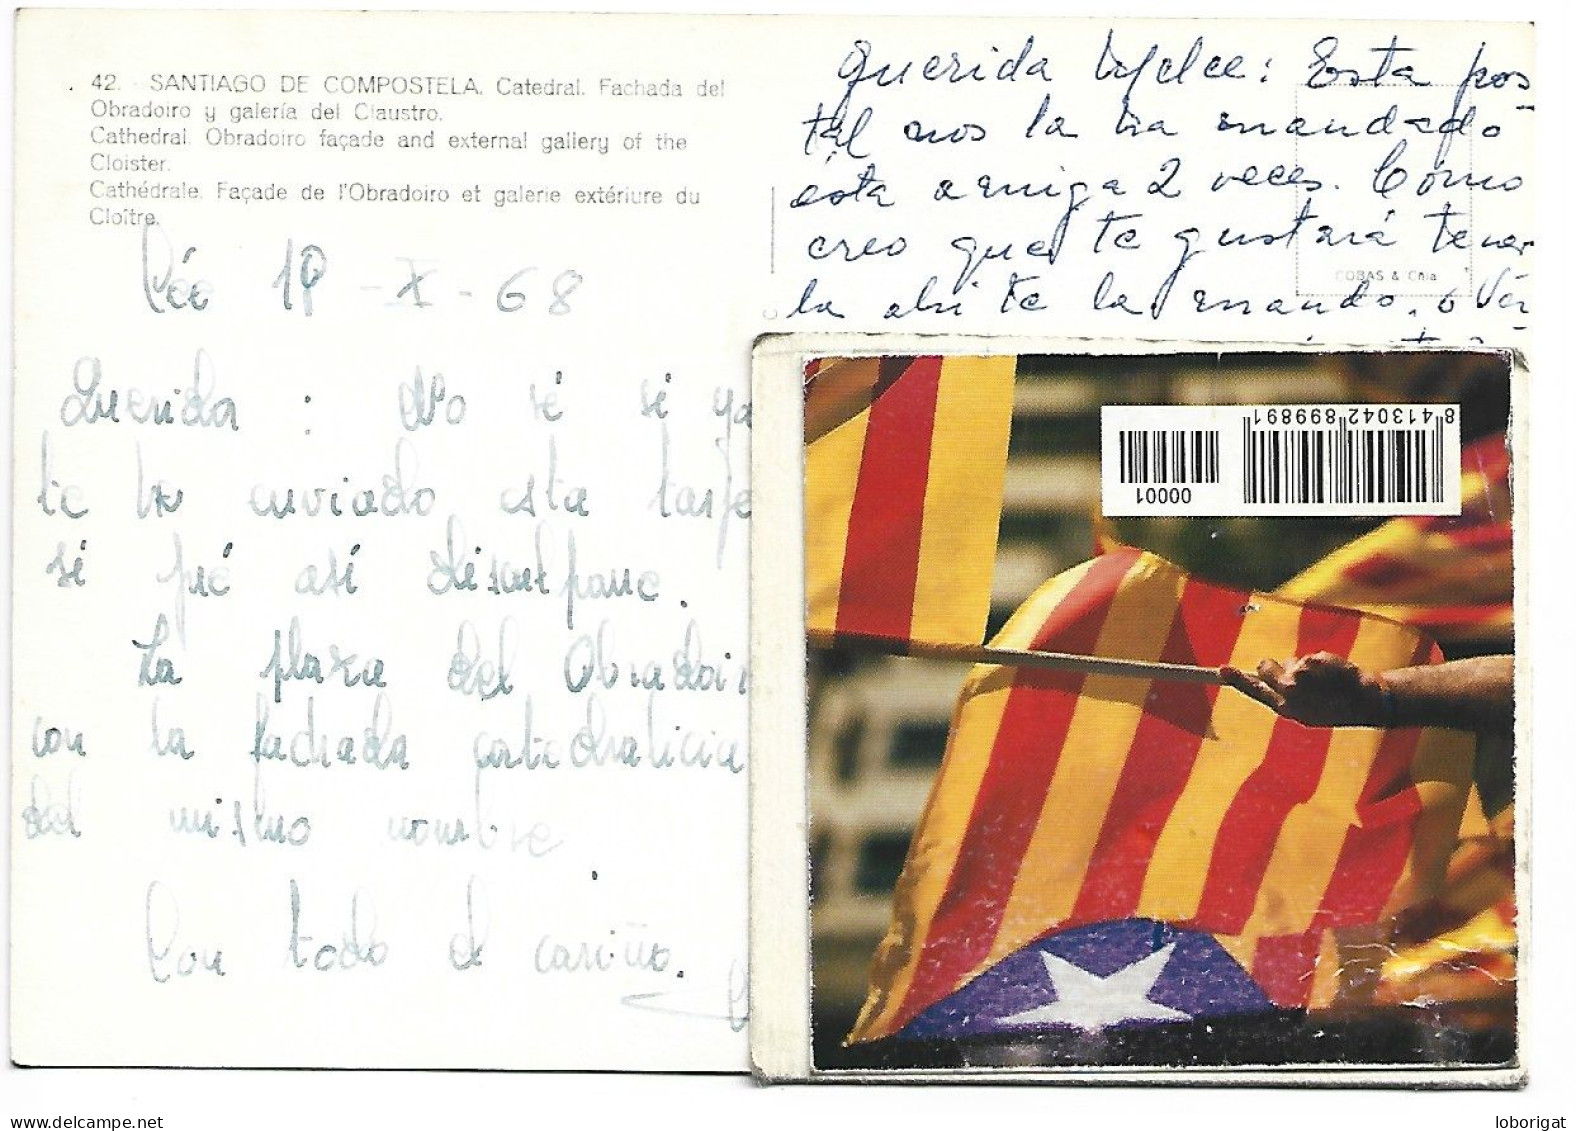 42. - SANTIAGO DE COMPOSTELA. Catedral. Fachada del
Obradoiro y galería del Claustro.
Cathedral. Obradoiro façade and external gallery of the
Cloister.
Cathédrale. Façade de l'Obradoiro et galerie extériure du
Cloître.
19-X-68
Querida : No sé si ya
te he enviado esta tarje
sí pué así disculpame.
La plaza del Obradoi
con la fachada catedralicia
del mismo nombre
Con todo el cariño.
Querida : Esta pos-
tal nos la ha mandado
ésta amiga 2 veces. Cómo
creo que te gustará tener
la ahí te la mando.
COBAS & Cnia
8 413042 899891
00001
loborigat